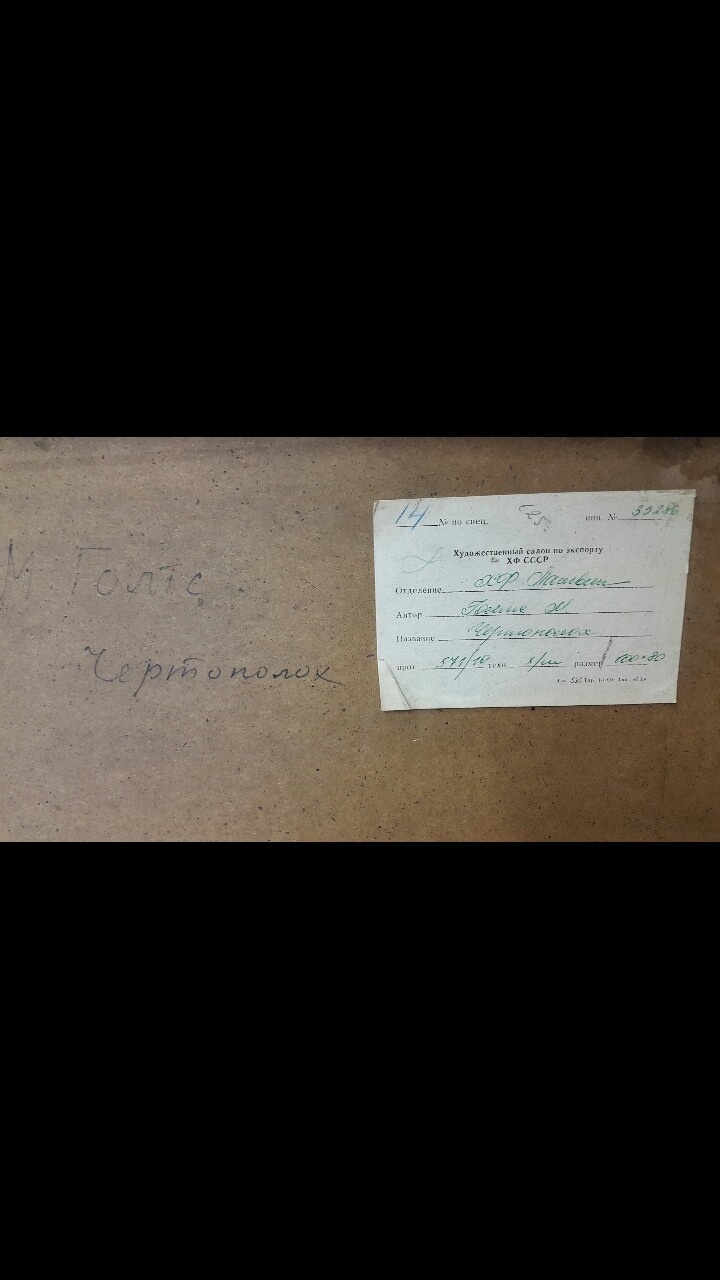 М. Голтс
Чертополох
14 № по спец. инв. № 35286
Художественный салон по экспорту
ХФ СССР
Отделение ХФ
Автор М.
Название Чертополох
прот. 571/10 техн. х/м размер 100×80